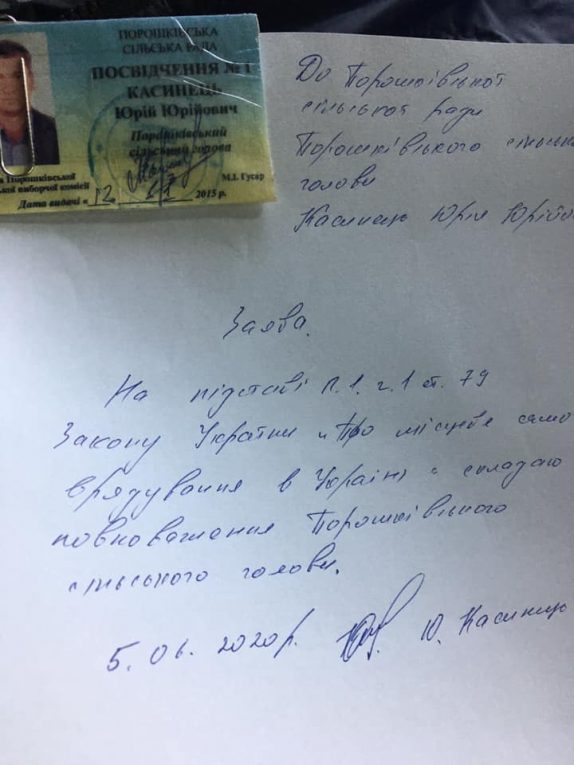 ПОРОШКІВСЬКА
СІЛЬСЬКА РАДА
ПОСВІДЧЕННЯ №1
КАСИНЕЦЬ
Юрій Юрійович
Порошківський
сільський голова
М.І. Гусар
а Порошківської
кої виборчої комісії
Дата видачі «12 2015 р.
До Порошківської
сільської ради
Порошківського сільськ
голови
Касинець Юрія Юрійо
Заява.
На підставі п.1. ч.1 ст. 79
Закону України "Про місцеве само
врядування в Україні" складаю
повноваження Порошківського
сільського голови.
5. 06. 2020р. Ю. Касинець